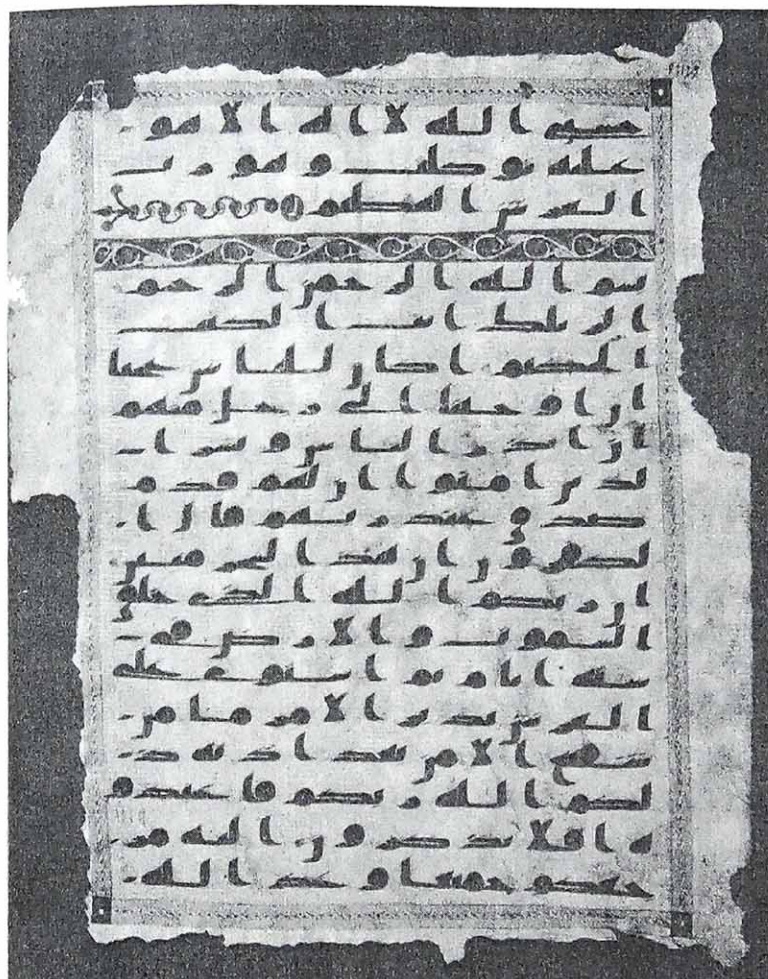 حسبي الله لا اله الا هو
عليه توكلت و هو رب
العرش العظيم
بسم الله الرحمن الرحيم
الر تلك ايت الكتب
الحكيم اكان للناس عجبا
ان اوحينا الى رجل منهم
ان انذر الناس و بشر ا
لذين امنوا ان لهم قدم
صدق عند ربهم قال ا
لكفرون ان هذا لسحر مبين
ان ربكم الله الذى خلق
السموت و الارض فى
ستة ايام ثم استوى على
العرش يدبر الامر ما من
شفيع الا من بعد اذنه ذ
لكم الله ربكم فاعبدو
ه افلا تذكرون اليه مر
جعكم جميعا وعد الله